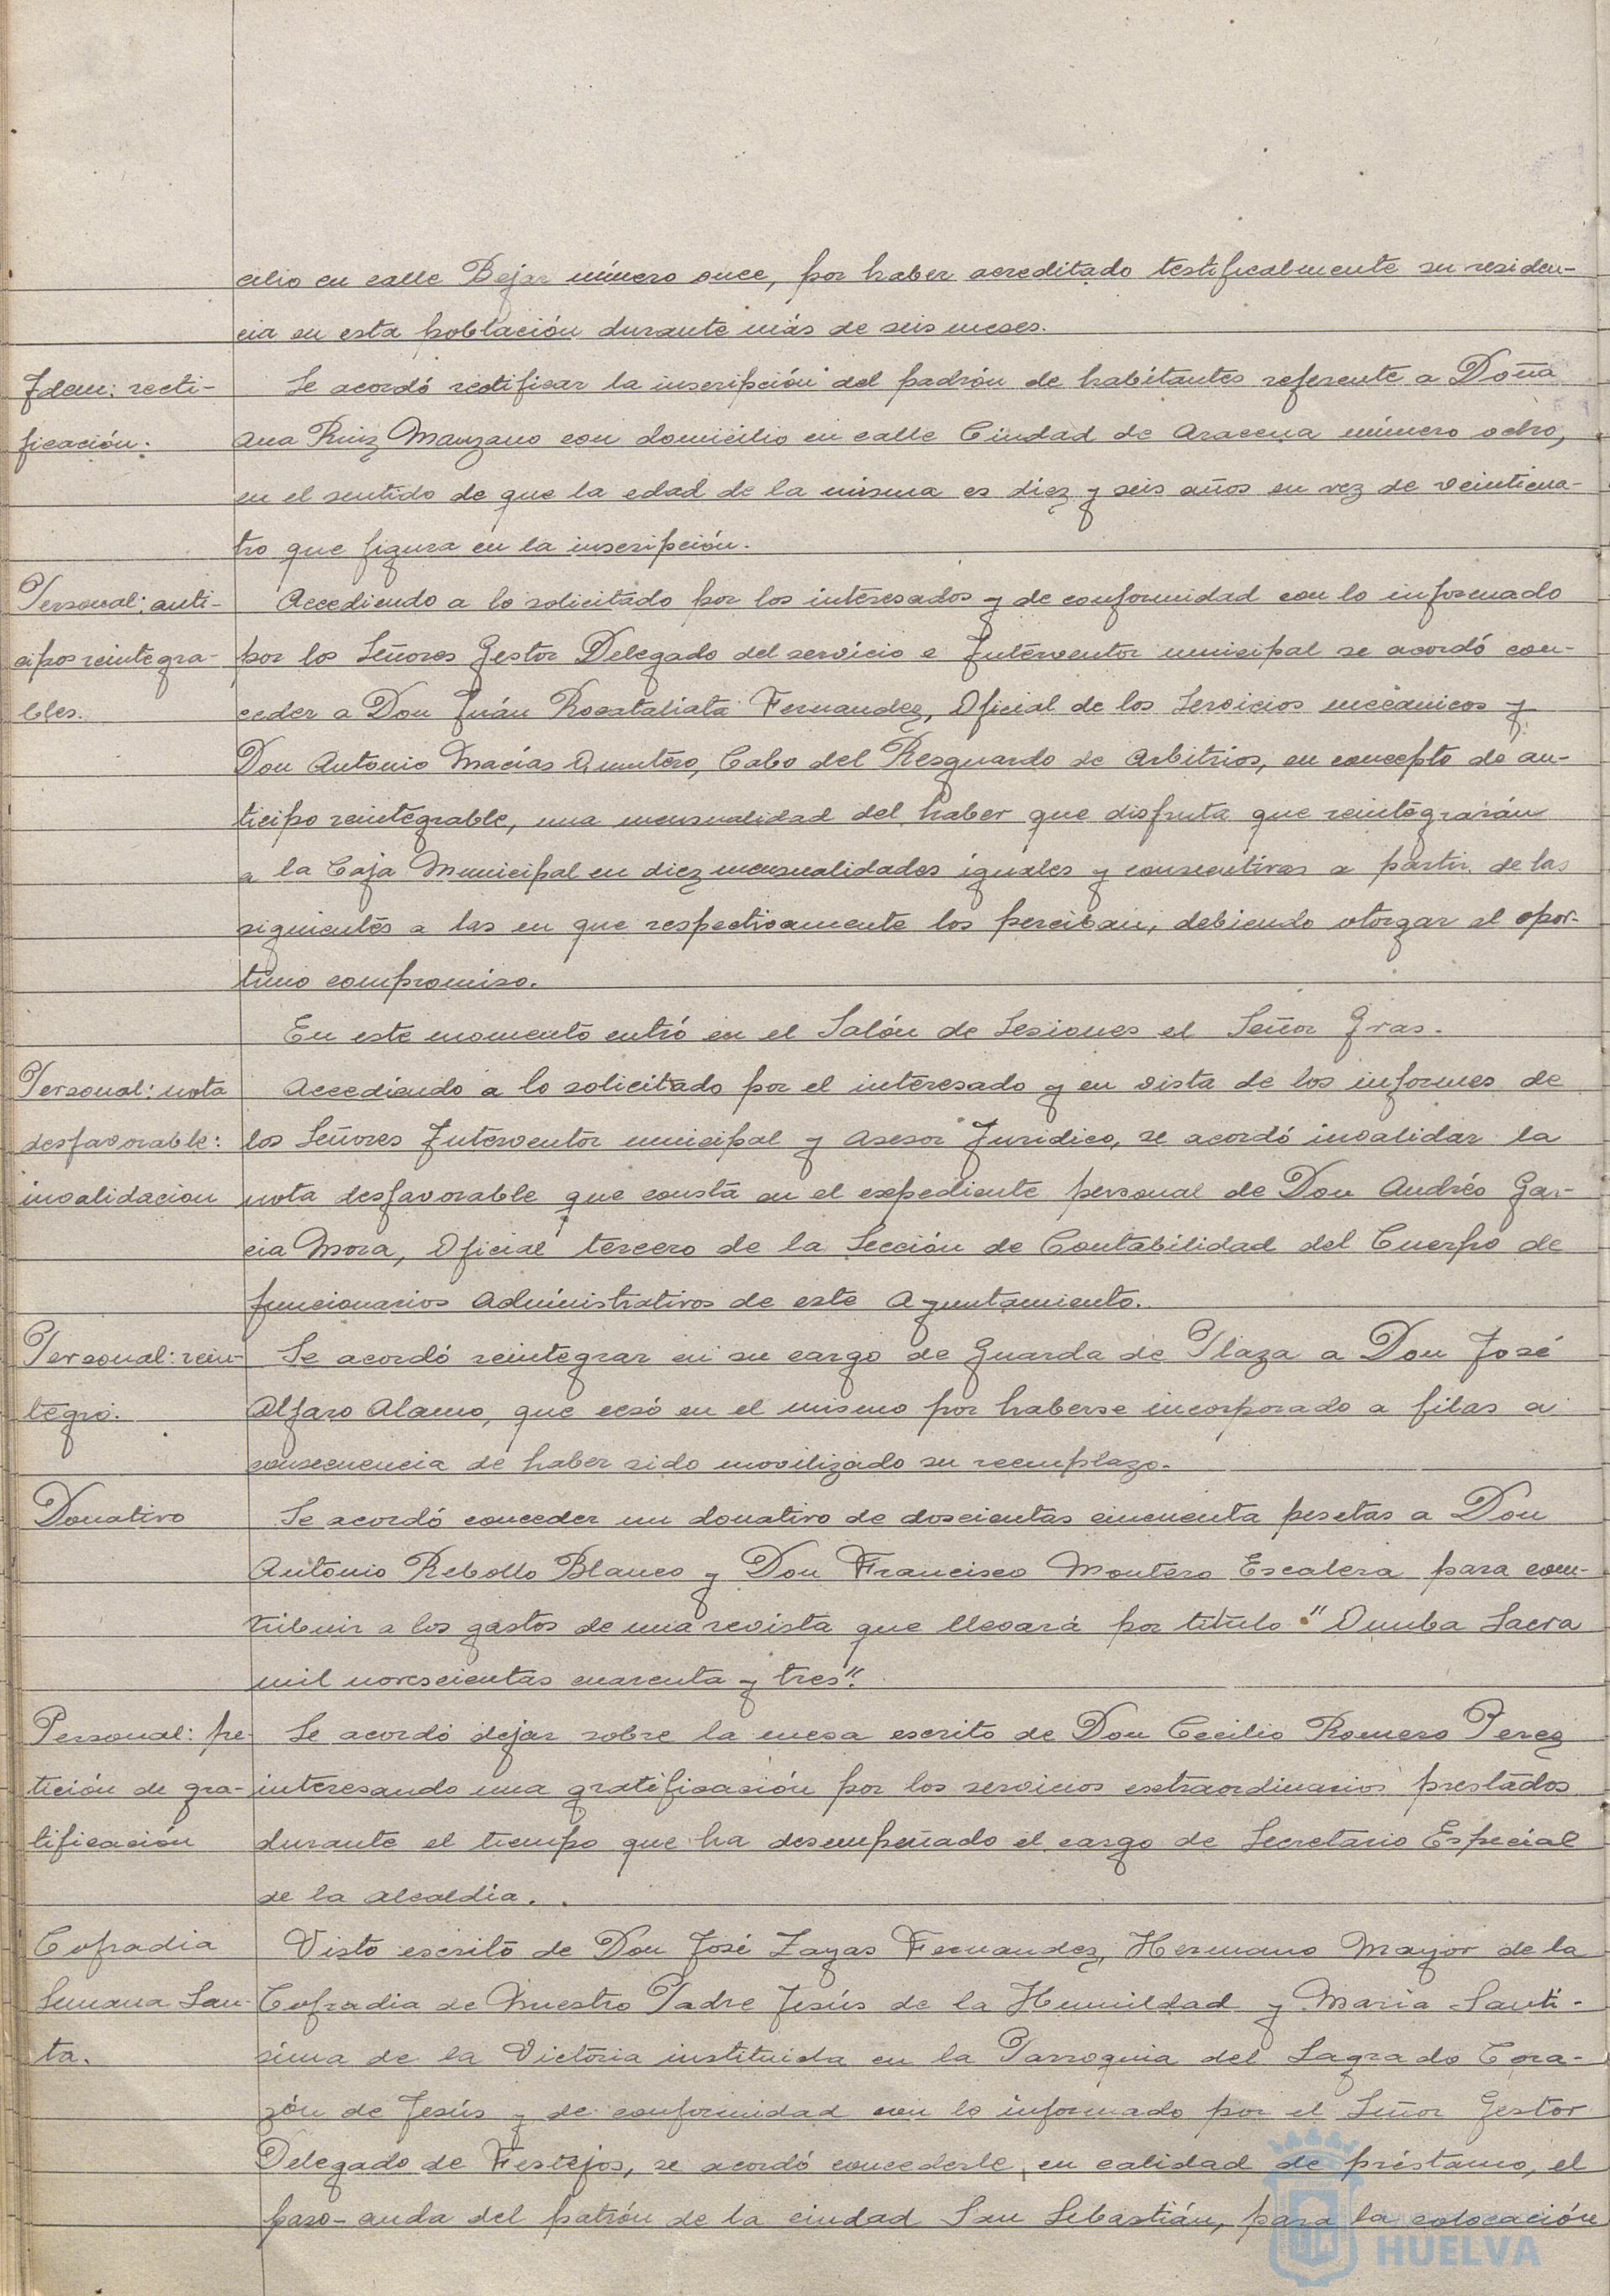 cilio en calle Bejar número once, por haber acreditado testificalmente su residen-
cia en esta población durante más de seis meses.
Idem: recti-
ficación.
Se acordó rectificar la inscripción del padrón de habitantes referente a Doña
Ana Ruiz Manzano con domicilio en calle Ciudad de Aracena número ocho,
en el sentido de que la edad de la misma es diez y seis años en vez de veinticua-
tro que figura en la inscripción.
Personal: anti-
cipos reintegra-
bles.
Accediendo a lo solicitado por los interesados y de conformidad con lo informado
por los Señores Gestor Delegado del servicio e Interventor municipal se acordó con-
ceder a Don Juán Rocataliata Fernandez, Oficial de los Servicios mecánicos y
Don Antonio Macías Quintero, Cabo del Resguardo de Arbitrios, en concepto de an-
ticipo reintegrable, una mensualidad del haber que disfruta que reintegrarán
a la Caja Municipal en diez mensualidades iguales y consecutivas a partir de las
siguientes a las en que respectivamente los perciban, debiendo otorgar el opor-
tuno compromiso.
En este momento entró en el Salón de Sesiones el Señor Gras.
Personal: nota
desfavorable:
invalidacion
Accediendo a lo solicitado por el interesado y en vista de los informes de
los Señores Interventor municipal y Asesor Juridico, se acordó invalidar la
nota desfavorable que consta en el expediente personal de Don Andrés Gar-
cia Mora, Oficial tercero de la Sección de Contabilidad del Cuerpo de
funcionarios Administrativos de este Ayuntamiento.
Personal: rein-
tegro.
Se acordó reintegrar en su cargo de Guarda de Plaza a Don José
Alfaro Alamo, que cesó en el mismo por haberse incorporado a filas a
consecuencia de haber sido movilizado su reemplazo.
Donativo
Se acordó conceder un donativo de doscientas cincuenta pesetas a Don
Antonio Rebollo Blanco y Don Francisco Montero Escalera para con-
tribuir a los gastos de una revista que llevará por titulo "Onuba Sacra
mil novescientas cuarenta y tres".
Personal: pe-
tición de gra-
tificación
Se acordó dejar sobre la mesa escrito de Don Cecilio Romero Perez
interesando una gratificación por los servicios extraordinarios prestados
durante el tiempo que ha desempeñado el cargo de Secretario Especial
de la Alcaldia.
Cofradia
Semana San-
ta.
Visto escrito de Don José Zayas Fernandez, Hermano Mayor de la
Cofradia de Nuestro Padre Jesús de la Humildad y Maria Santi-
sima de la Victoria instituida en la Parroquia del Sagrado Cora-
zón de Jesús y de conformidad con lo informado por el Señor Gestor
Delegado de Festejos, se acordó concederle, en calidad de préstamo, el
paso-anda del patrón de la ciudad San Sebastián, para la colocación
HUELVA